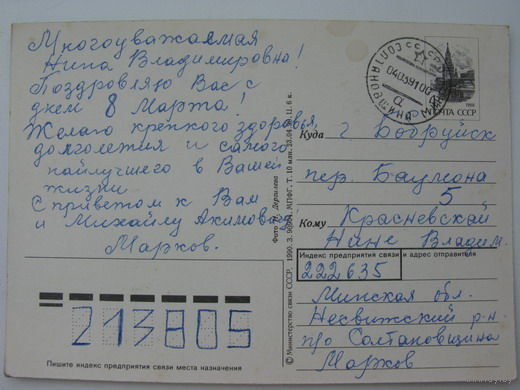 Многоуважаемая
Нина Владимировна!
Поздравляю Вас с
днем 8 Марта!
Желаю крепкого здоровья,
долголетия и самого
наилучшего в Вашей
жизни
С приветом к Вам
и Михаилу Акимова
Марков.
ПОЧТА СССР
Куда г. Бобруйск
пер. Баумана
5
Кому Красневской
Нине Владим.
Индекс предприятия связи и адрес отправителя
222635
Минская обл.
Несвижский р-н
п/о Солтановщина
Марков
213805
Пишите индекс предприятия связи места назначения
© Министерство связи СССР. 1990. З. МПФГ.
Фото